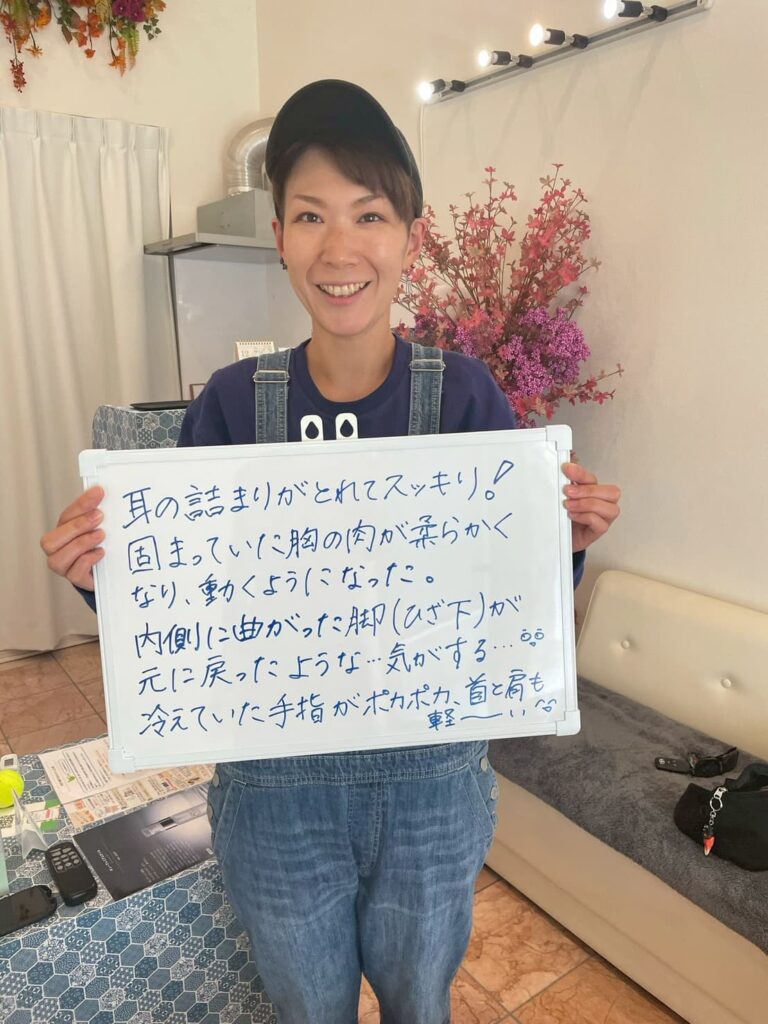 耳の詰まりがとれてスッキリ!
固まっていた胸の肉が柔らかく
なり、動くようになった。
内側に曲がった脚(ひざ下)が
元に戻ったような…気がする…
冷えていた手指がポカポカ、首と肩も
軽〜い